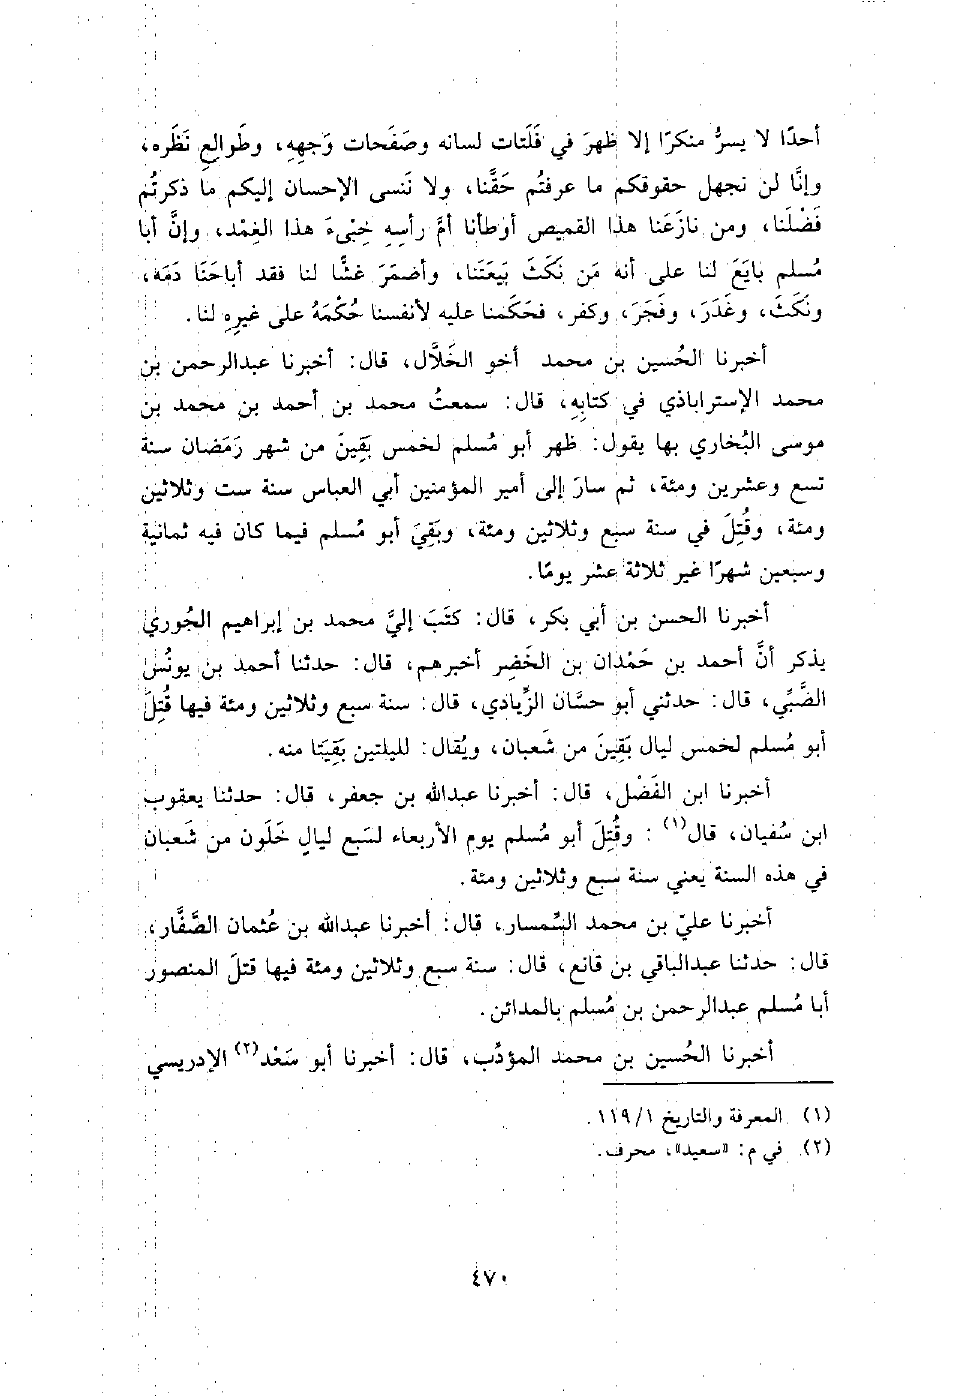 أحدًا لا يسرُّ منكرًا إلا ظهرَ في فَلَتات لسانه وصَفَحات وَجهِهِ، وطَوالعِ نَظَره،
وإنَّا لن نجهل حقوقكم ما عرفتُم حَقَّنا، ولا نَنسى الإحسان إليكم ما ذكرتُم
فَضْلَنا، ومن نازَعَنا هذا القميص أوطأنا أمَّ رأسِهِ خِبْىءَ هذا الغِمْد، وإنَّ أبا
مُسلم بايَعَ لنا على أنه مَن نكَثَ بَيعَتَنا، وأضمَرَ غشًّا لنا فقد أباحَنَا دَمَه،
ونكَثَ، وغَدَرَ، وفَجَرَ، وكفر، فحَكَمنا عليه لأنفسنا حُكْمَهُ على غيرِه لنا.
أخبرنا الحُسين بن محمد أخو الخَلَّال، قال: أخبرنا عبدالرحمن بن
محمد الإستراباذي في كتابِهِ، قال: سمعتُ محمد بن أحمد بن محمد بن
موسى البُخاري بها يقول: ظهر أبو مُسلم لخمس بَقِينَ من شهر رَمَضان سنة
تسع وعشرين ومئة، ثم سارَ إلى أمير المؤمنين أبي العباس سنة ست وثلاثين
ومئة، وقُتِلَ في سنة سبع وثلاثين ومئة، وبَقِيَ أبو مُسلم فيما كان فيه ثمانية
وسبعين شهرًا غير ثلاثة عشر يومًا.
أخبرنا الحسن بن أبي بكر، قال: كتَبَ إليَّ محمد بن إبراهيم الجُوري
يذكر أنَّ أحمد بن حَمْدان بن الخَضِر أخبرهم، قال: حدثنا أحمد بن يونُس
الضَّبِّي، قال: حدثني أبو حسَّان الزِّيادي، قال: سنة سبع وثلاثين ومئة فيها قُتِلَ
أبو مُسلم لخمس ليال بَقِينَ من شَعبان، ويُقال: لليلتين بَقِيَتا منه.
أخبرنا ابن الفَضْل، قال: أخبرنا عبدالله بن جعفر، قال: حدثنا يعقوب
ابن سُفيان، قال(١): وقُتِلَ أبو مُسلم يوم الأربعاء لسَبع ليالٍ خَلَون من شَعبان
في هذه السنة يعني سنة سَبع وثلاثين ومئة.
أخبرنا عليّ بن محمد السِّمسار، قال: أخبرنا عبدالله بن عُثمان الصَّفَّار،
قال: حدثنا عبدالباقي بن قانع، قال: سنة سبع وثلاثين ومئة فيها قتلَ المنصور
أبا مُسلم عبدالرحمن بن مُسلم بالمدائن.
أخبرنا الحُسين بن محمد المؤدِّب، قال: أخبرنا أبو سَعْد(٢) الإدريسي
(١) المعرفة والتاريخ ١/ ١١٩.
(٢) في م: «سعيد»، محرف.
٤٧٠